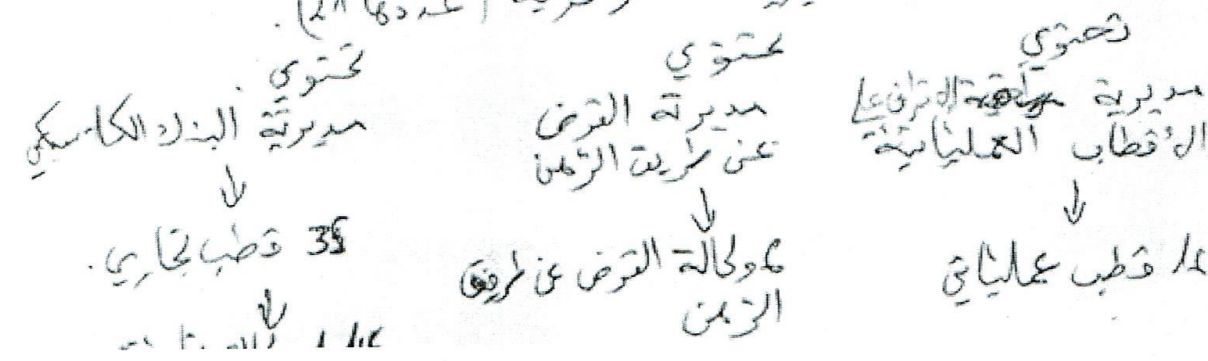 (عددها 28).
تحتوي
مديرية الإشراف على
الأقطاب العملياتية
↓
قطب عملياتي
تحتوي
مديرية القرض
عن طريق الرهن
↓
وكالة القرض عن طريق
الرهن
تحتوي
مديرية البنك الكلاسيكي
↓
35 قطب تجاري.
↓